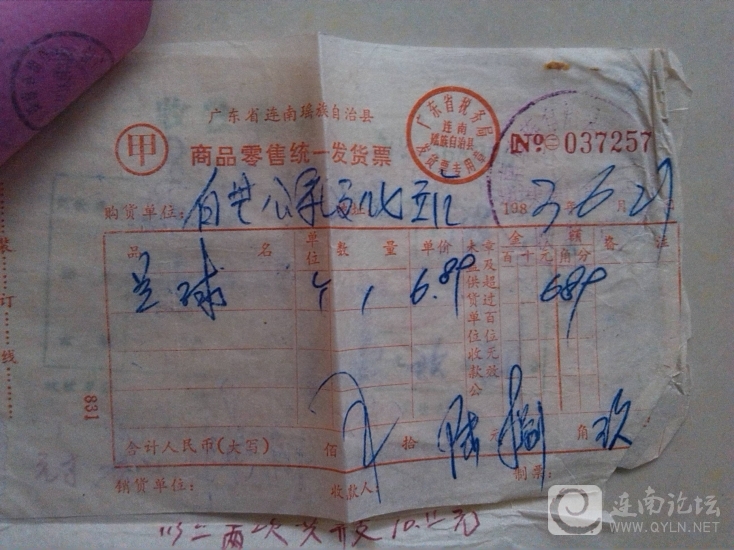 广东省连南瑶族自治县
甲
商品零售统一发货票
广东省税务局
连南
瑶族自治县
发货票专用章
No 037257
购货单位:
198 3 年 6 月 27
品 名 单位 数量 单价 金额 备注
百 十 元 角 分
未盖供货单位收款公
章及超过百位元效
兰球 个 1 6.89 689
合计人民币(大写) 佰 拾 陆 元 捌 角 玖
销货单位: 收款人 制票:
装订线
831
以上两次共开支10.
连南论坛
WWW.QYLN.NET